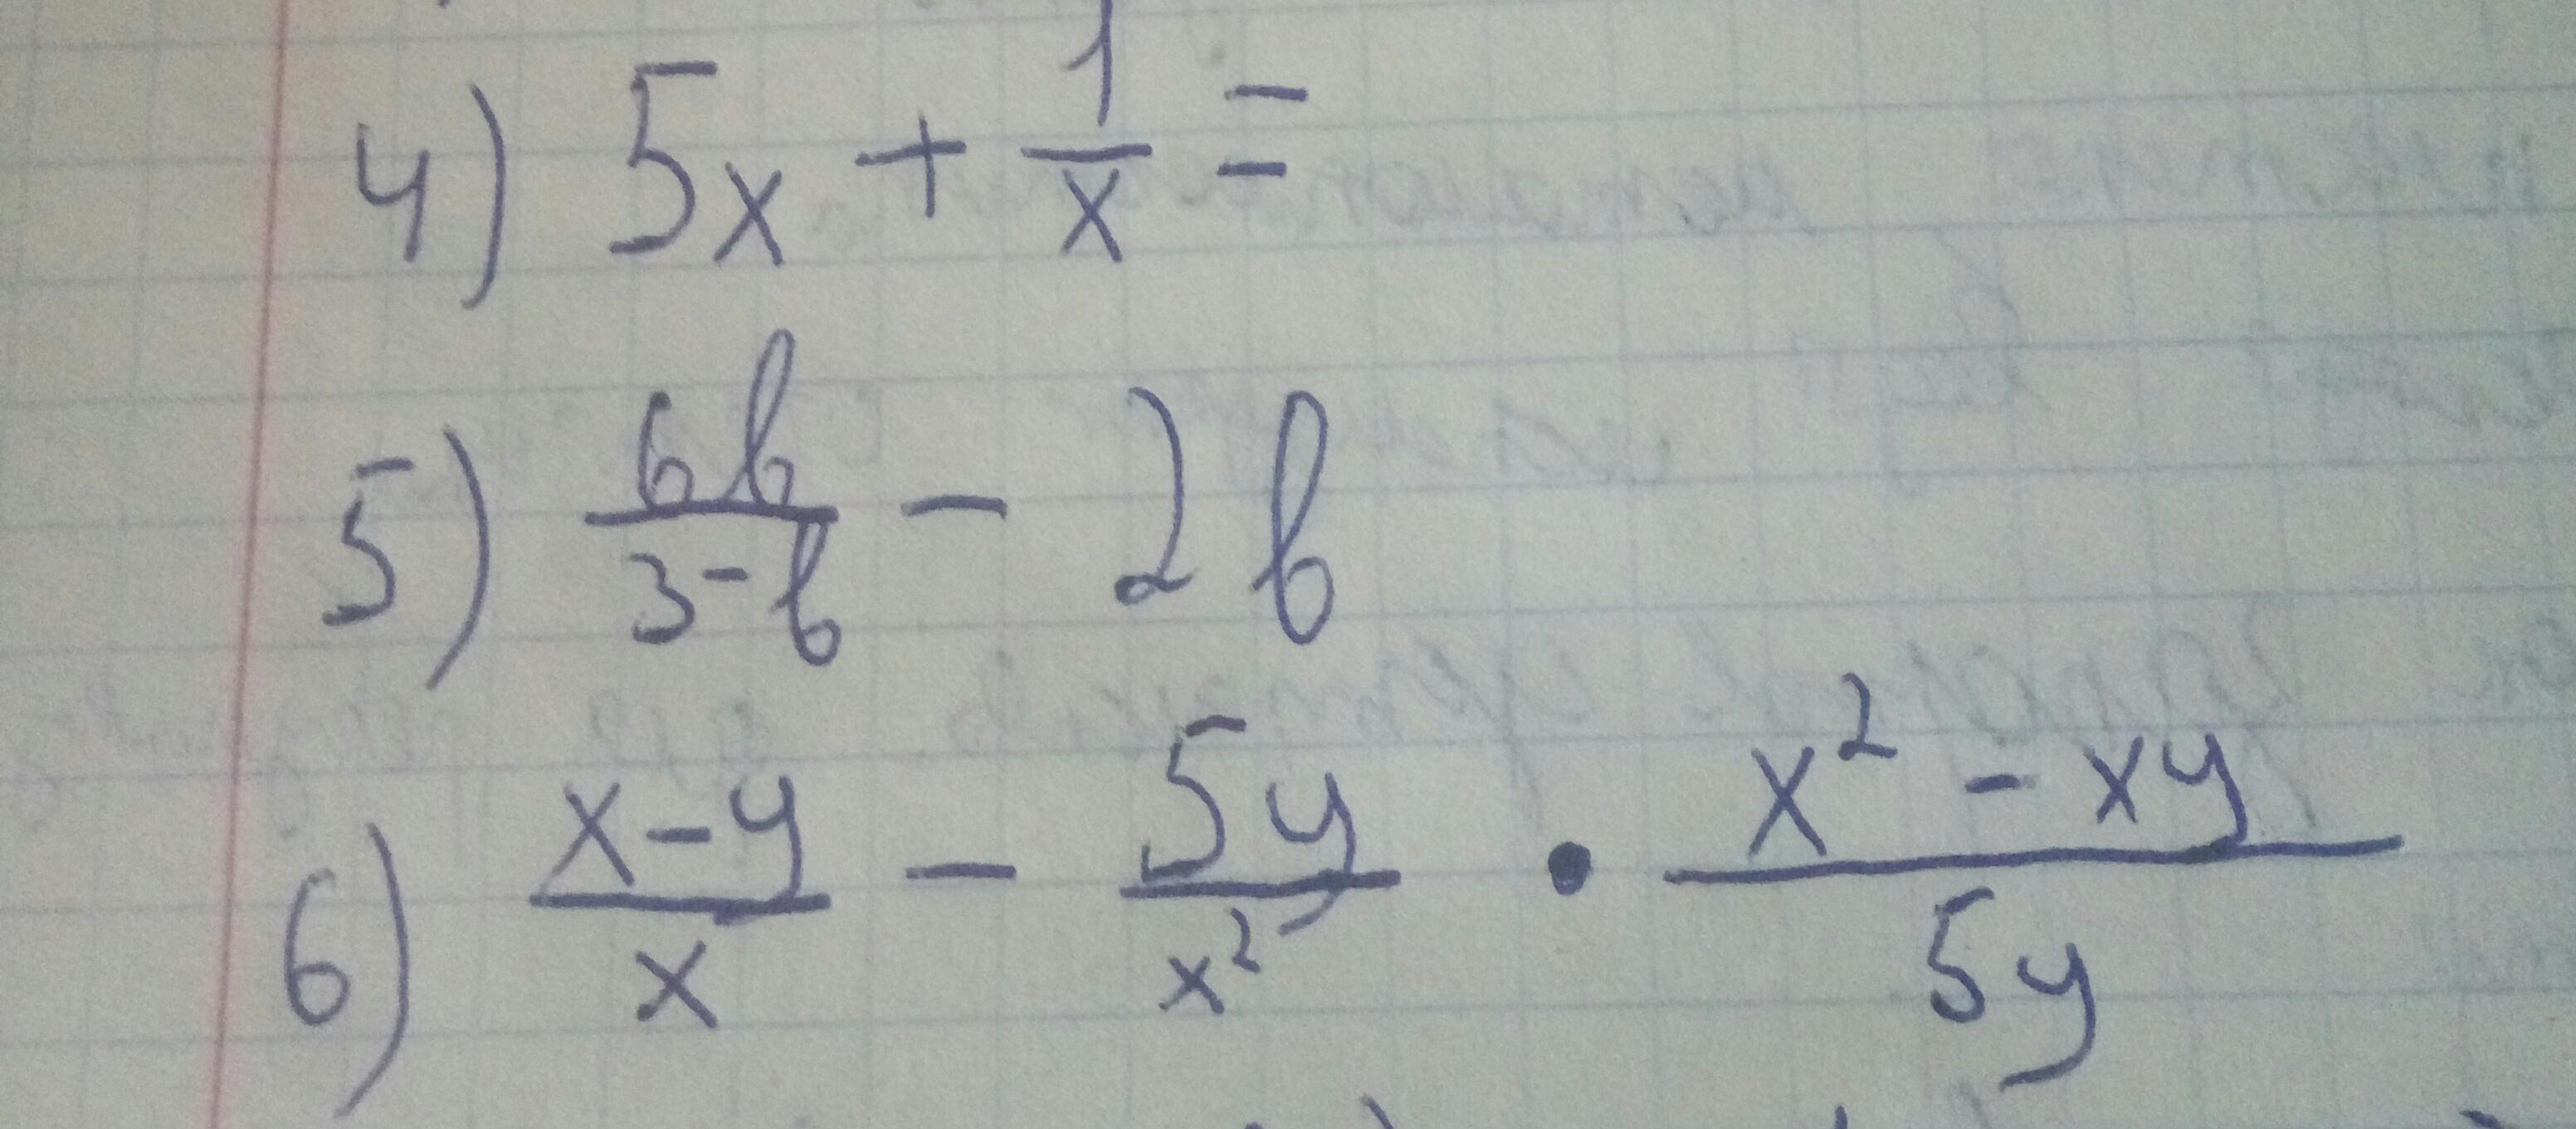 4) 5x + 1/x =
5) 6b/(3-b) - 2b
6) (x-y)/x - 5y/x² · (x² - xy)/5y